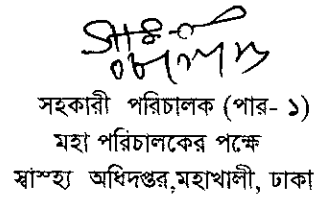 সহকারী পরিচালক (পার- ১)
মহা পরিচালকের পক্ষে
স্বাস্হ্য অধিদপ্তর,মহাখালী, ঢাকা